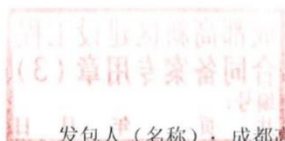 成都高新区建设工程
合同备案专用章(3)
编号:
年 月 日
发包人(名称):成都